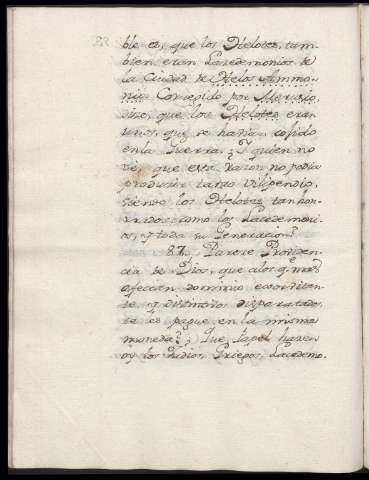 ble es, que los Helotes, tam-
bien eran Lacedemonios de
la Ciudad de Helos. Ammo-
nio Corregido por Mersio
dize, que los Helotes eran
unos, que se havian cogido
en la Guerra. ¿Y quien no
vé, que esta razon no podia
producir tanto vilipendio,
siendo los Helotes tan hon-
rados como los Lacedemoni-
os, y toda su Generacion?
87. Parece Providen-
cia de Dios, que a los q. mas
afectan dominio exorbitan-
te, y distincion disparatada,
se les pague en la misma
moneda. ¿Que Papel hazen
oy los Indios, Griegos, Lacedemo-